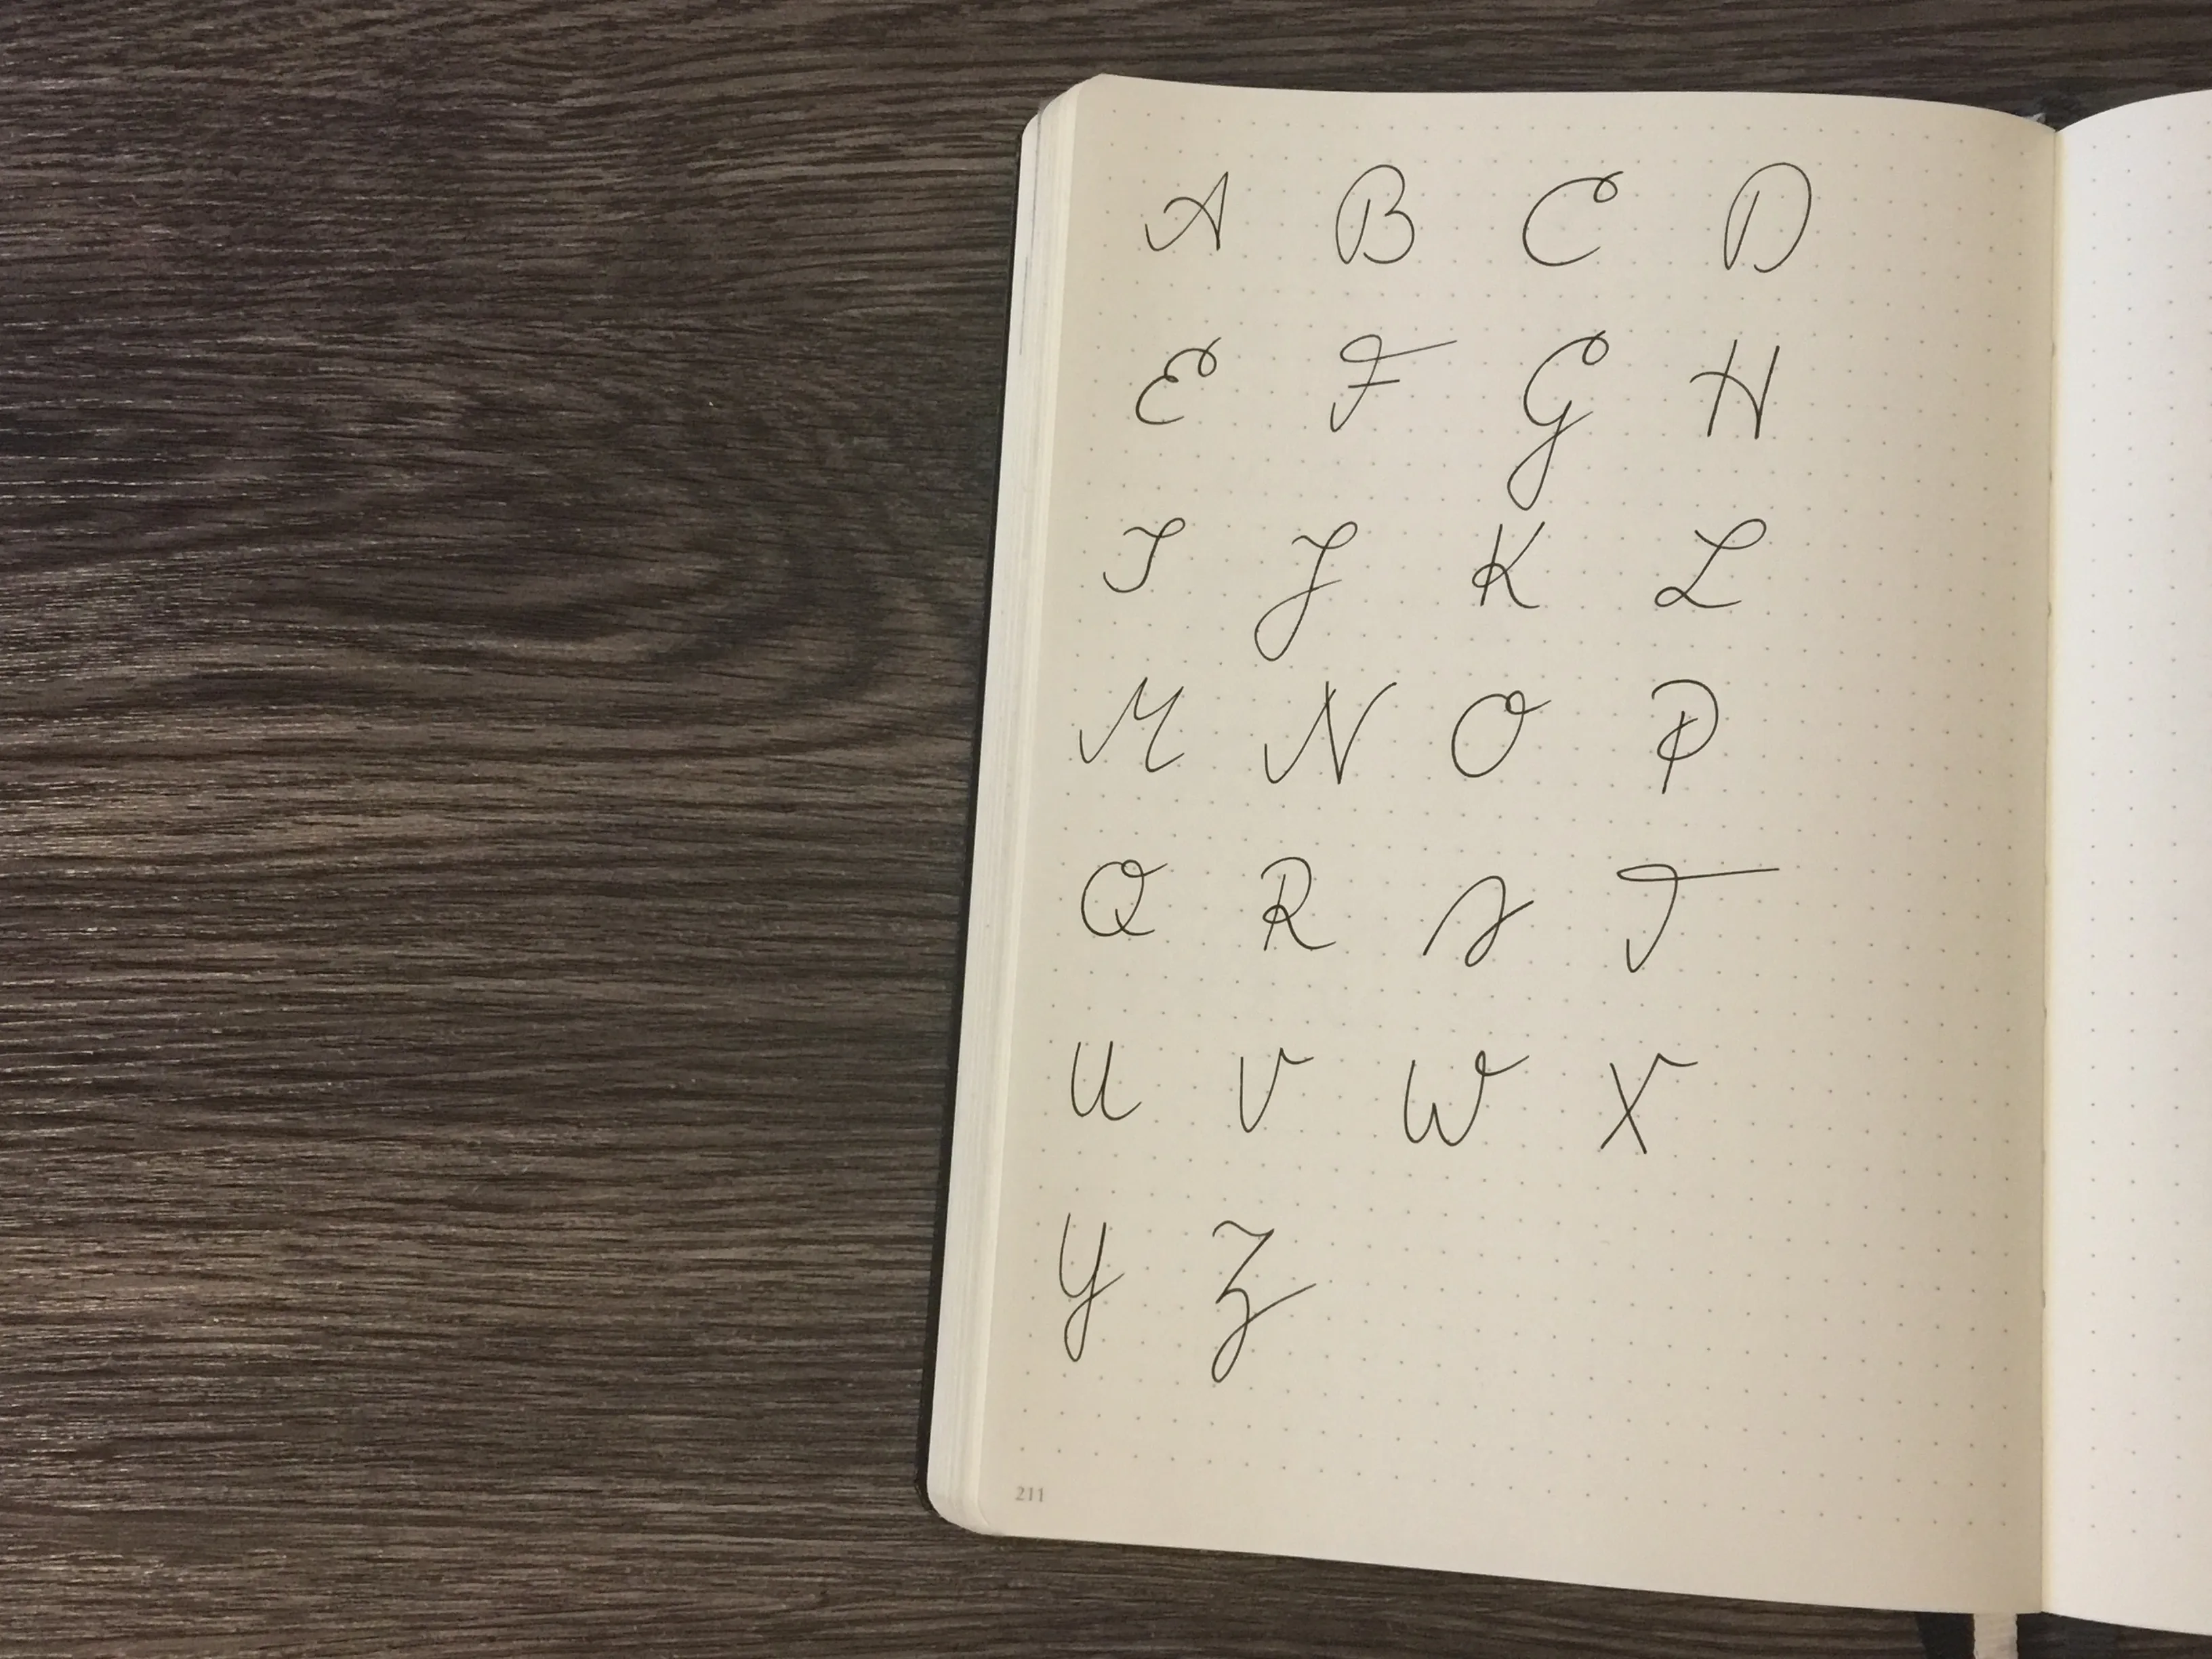 A B C D
E F G H
I J K L
M N O P
Q R S T
U V W X
Y Z
211